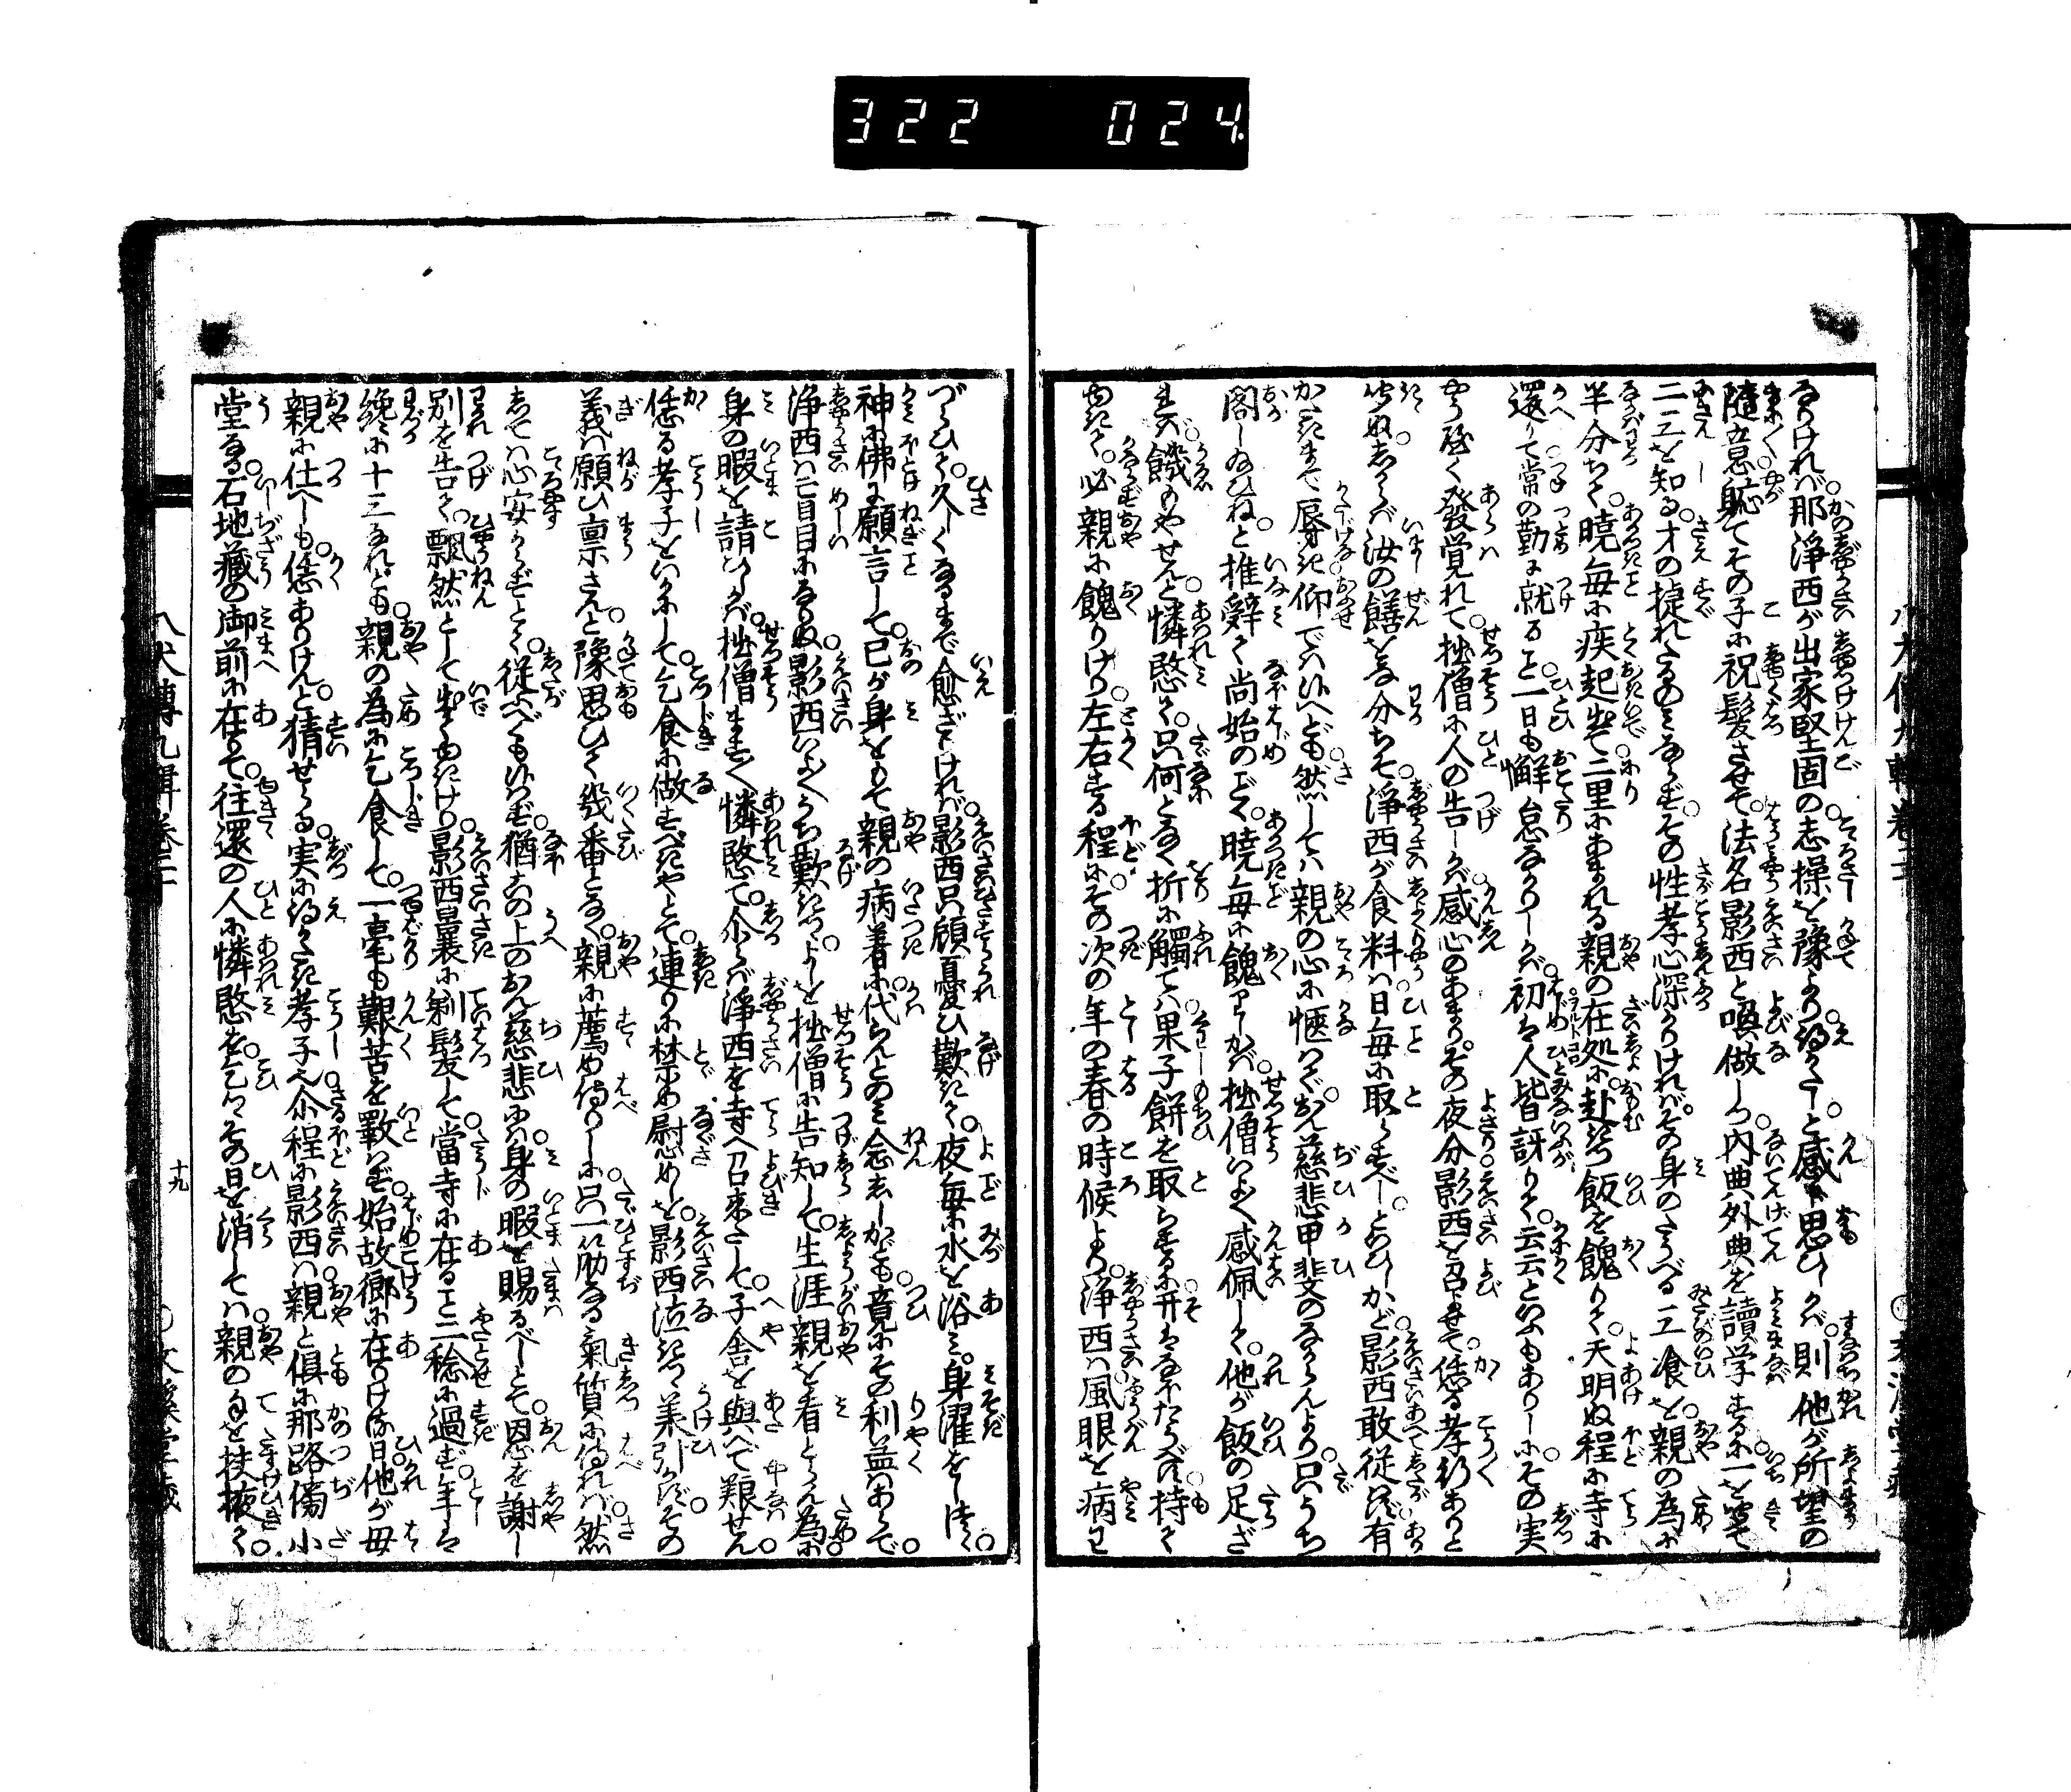 322 024
なりければ那浄西が出家堅固の志操を豫より得てしと感思ひしかば則他が所望の
隨意恥てその子に祝髪させて法名影西と喚做しつ内典外典を讀学するに一を聞て
二三を知るオの捷れたるのみならずその性孝心深かりければその身のたうべる三飡を親の為に
半分ちて暁毎に疾起出て二里にあまれる親の在処に赴きつ飯を餽りて天明ぬ程に寺に
還りて常の勤に就ること一日も懈怠なかりしかば初は人皆訝りて云云といふもありしにその実
やうやく發覚れて拙僧に人の告しかば感心のあまりその夜分影西を召よせて恁る孝行ありと
しからば汝の饍をな分ちそ浄西が食料は日毎に取らすべしといひしかど影西敢從はず有
かたきまで辱き仰では侍れども然しては親の心に愜はずおん慈悲甲斐のなからんより只うち
閣し給ひねと推辞て尚始のごとく暁毎に餽りしかば拙僧いよいよ感佩して他が飯の足ざ
れば饑もやせんと憐愍て只何となく折に觸ては果子餅を取らするに开はなほたうべず持て
ゆきて必親に餽りけり左右する程にその次の年の春の時候より浄西は風眼を病わ
づらひて久しくなるまで愈ざりければ影西只顧憂ひ歎きて夜毎に水を浴み身濯をしつつ
神に佛に願言して己が身をもて親の病着に代らんとのみ念ぜしかども竟にその利益はあらで
浄西は盲目になりぬ影西いよいようち歎きつつよしを拙僧に告知して生涯親を看とらん為に
身の暇を請ひしかば拙僧ますます憐愍て介らば浄西を寺へ召來たして子舎を與へて艱せん
恁る孝子をいかにして乞食に做すべきやとて連りに禁め慰めしを影西泣きつつ美引かずその
義は願ひ禀さんと豫思ひて幾番となく親に薦め侍りしに只一トすぢなる氣質に侍れば然
しては心安からずとて從ふべくも侍らず猶この上のおん慈悲には身の暇を賜るべしとて因恩を謝し
別を告て飄然として出てゆきけり影西曩に剃髪して當寺に在ること三稔に過ず年は
纔に十三なれども親の為に乞食して一毫も艱苦を數はず始故郷に在りける日他が母
親に仕へしも恁ありけんと猜せらる実に得がたき孝子也介程に影西は親と倶に那路傍小
堂なる石地藏の御前に在りて往還の人に憐愍を乞ひその日を消しては親の手を扶掖て
八犬傳九輯卷三十
十九